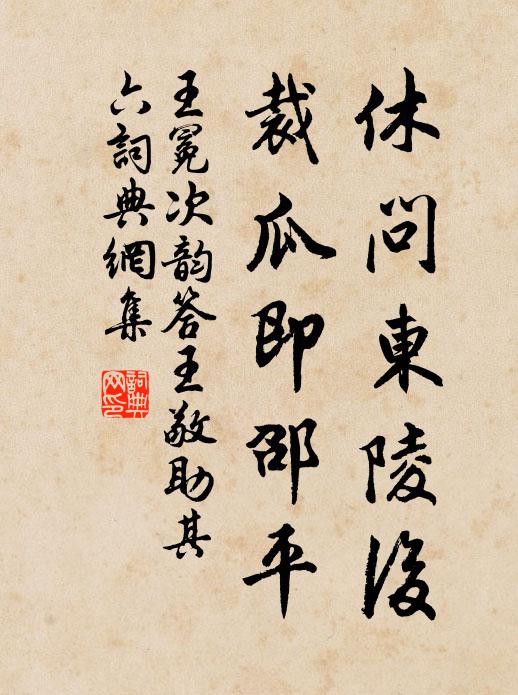 休問東陵後
裁瓜即邵平
王冕次韵答王敬助其
六詞典網集
詞典網印